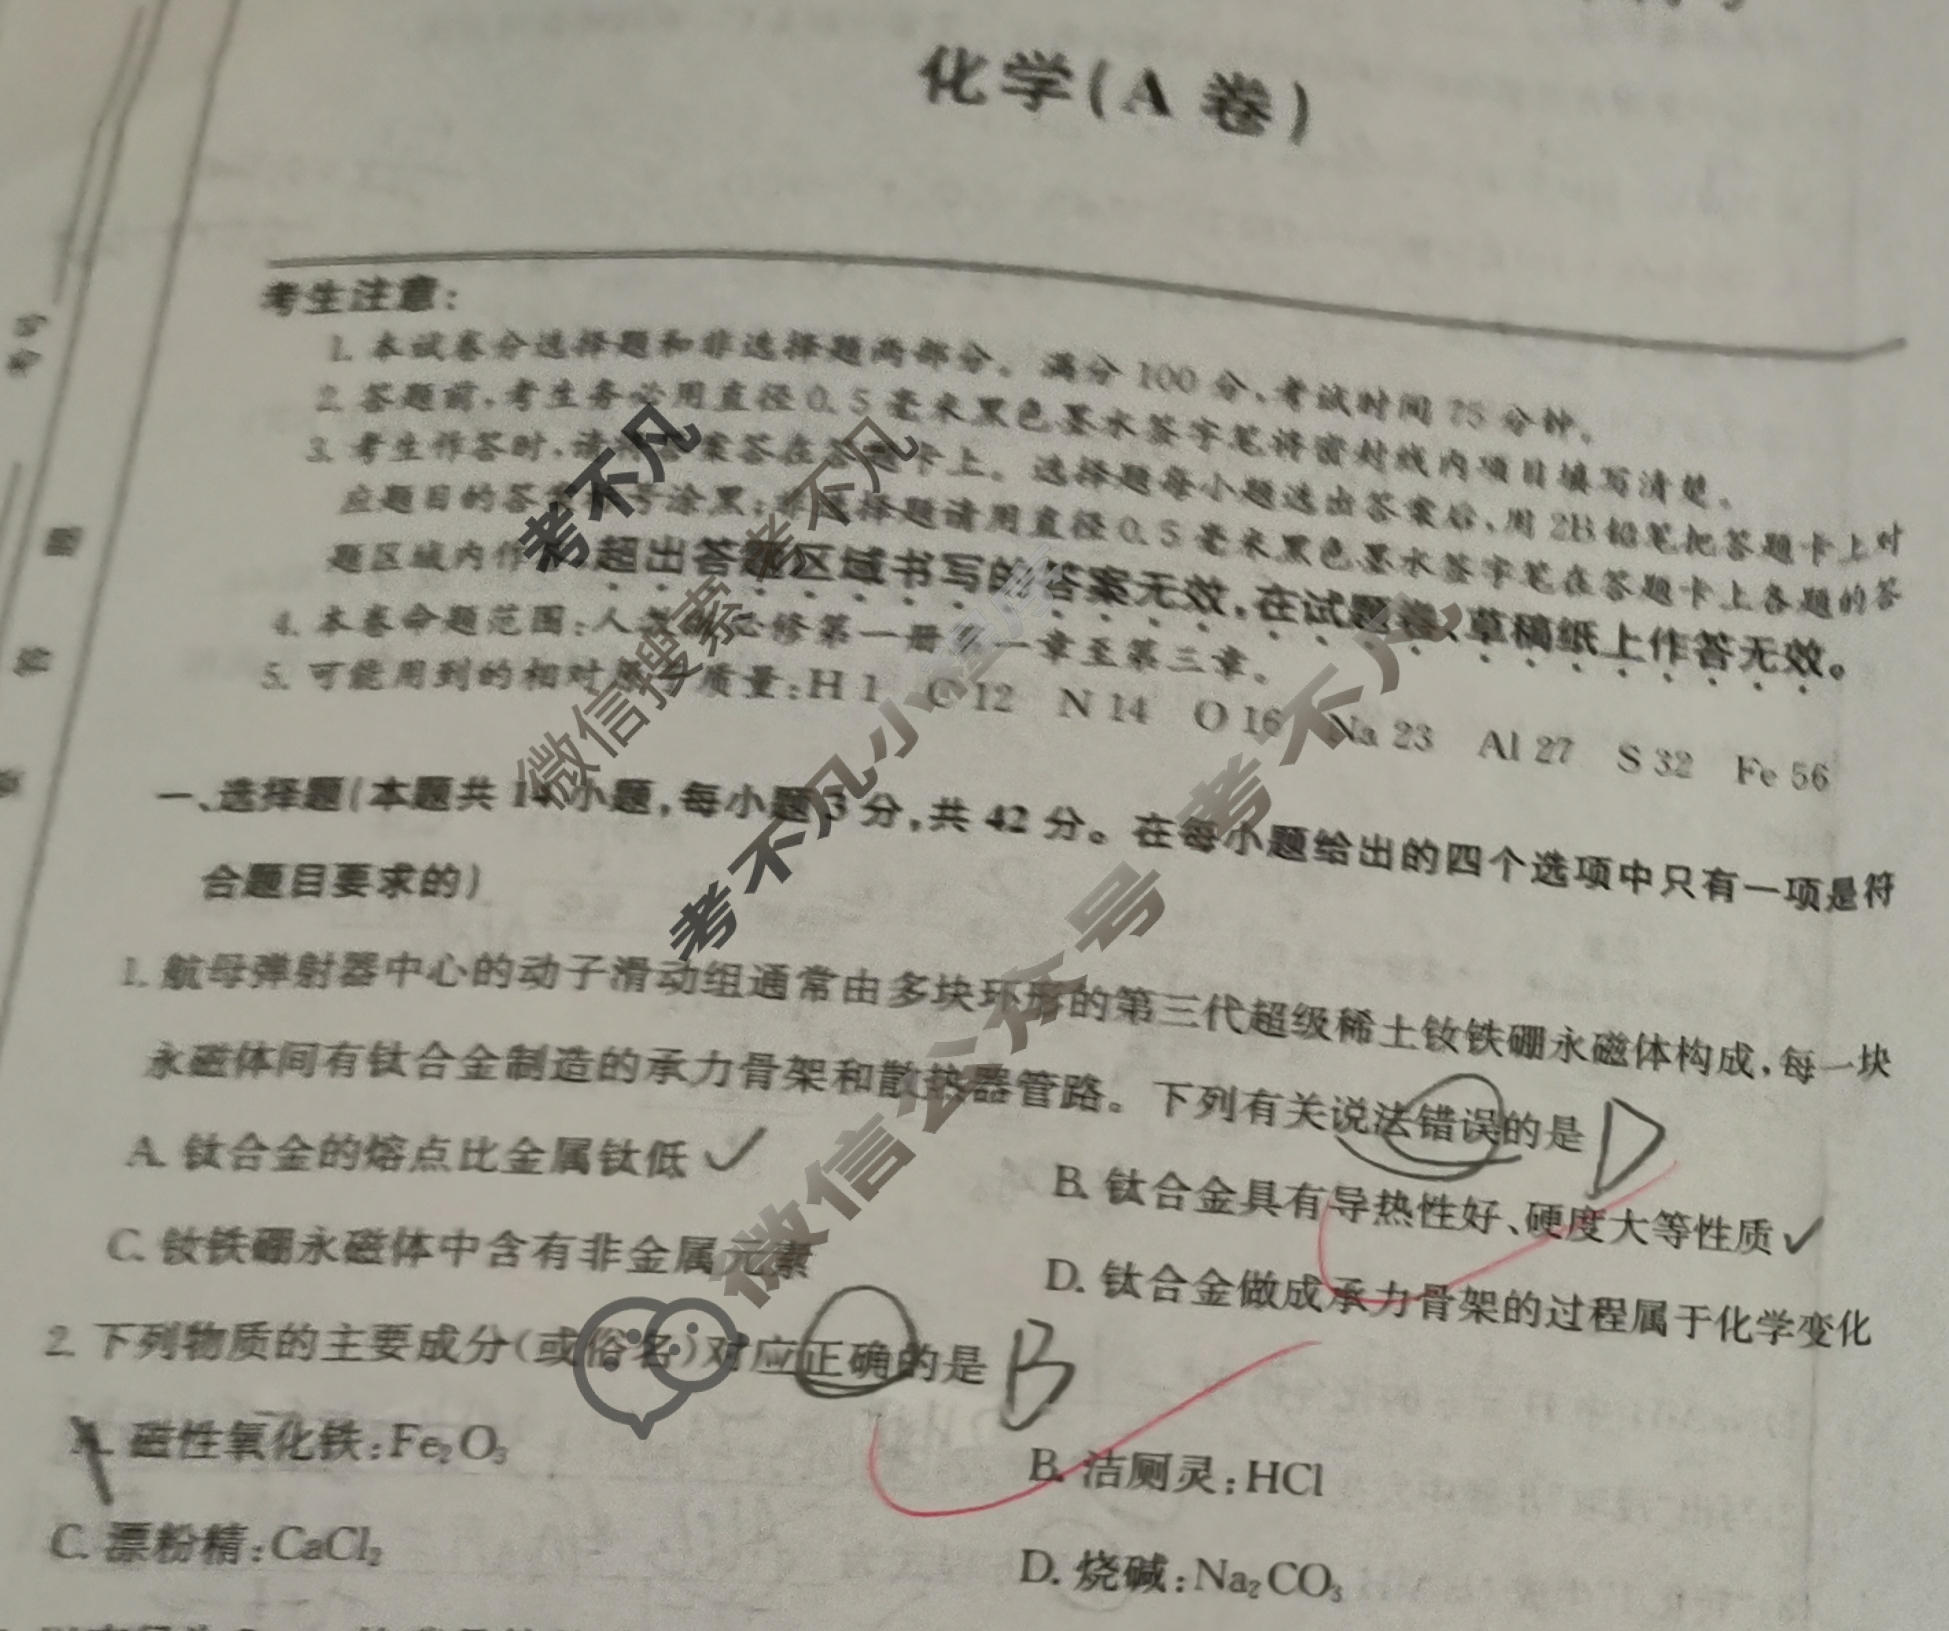 化学(A 卷)
考生注意:
1. 本试卷分选择题和非选择题两部分。满分 100 分,考试时间 75 分钟。
2. 答题前,考生务必用直径 0.5 毫米黑色墨水签字笔将密封线内项目填写清楚。
3. 考生作答时,请将答案答在答题卡上。选择题每小题选出答案后,用 2B 铅笔把答题卡上对
应题目的答案标号涂黑;非选择题请用直径 0.5 毫米黑色墨水签字笔在答题卡上各题的答
题区域内作答,超出答题区域书写的答案无效,在试题卷、草稿纸上作答无效。
4. 本卷命题范围:人教版必修第一册第一章至第三章。
5. 可能用到的相对原子质量:H 1 C 12 N 14 O 16 Na 23 Al 27 S 32 Fe 56
一、选择题(本题共 14 小题,每小题 3 分,共 42 分。在每小题给出的四个选项中只有一项是符
合题目要求的)
1. 航母弹射器中心的动子滑动组通常由多块环形的第三代超级稀土钕铁硼永磁体构成,每一块
永磁体间有钛合金制造的承力骨架和散热器管路。下列有关说法错误的是 D
A. 钛合金的熔点比金属钛低 ✓
B. 钛合金具有导热性好、硬度大等性质 ✓
C. 钕铁硼永磁体中含有非金属元素
D. 钛合金做成承力骨架的过程属于化学变化
2. 下列物质的主要成分(或俗名)对应正确的是 B
A. 磁性氧化铁:Fe₂O₃
B. 洁厕灵:HCl
C. 漂粉精:CaCl₂
D. 烧碱:Na₂CO₃
考不凡
微信搜索 考不凡
考不凡小程序
微信公众号 考不凡
题
答